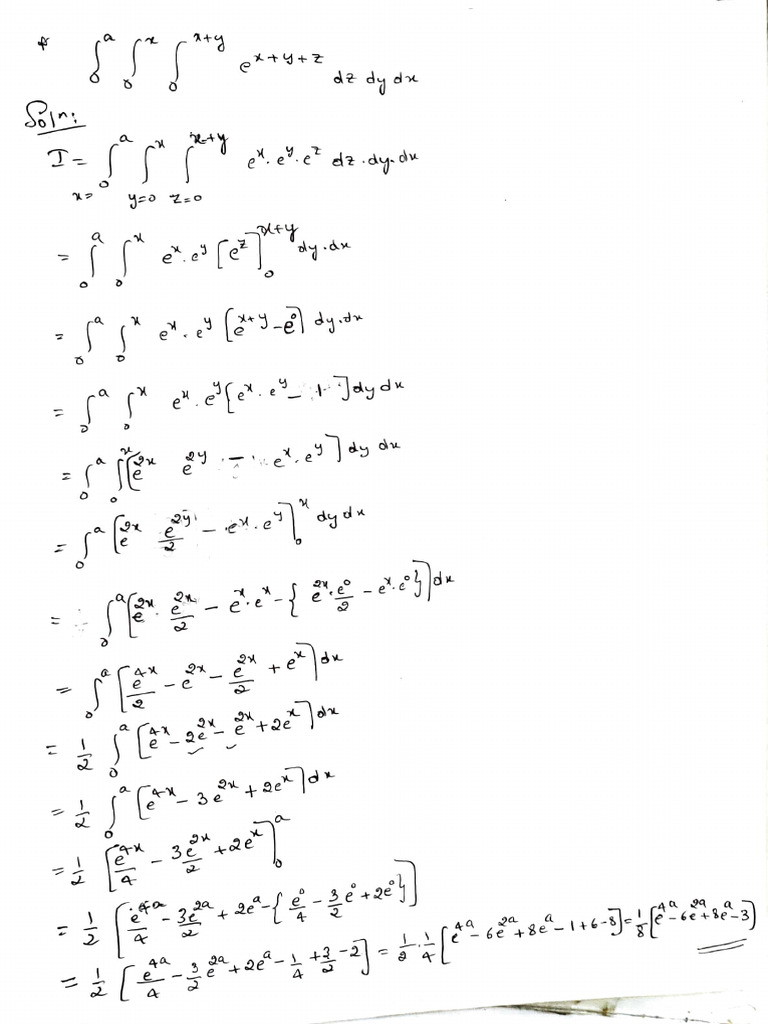 * ∫₀^a ∫₀^x ∫₀^{x+y} e^{x+y+z} dz dy dx
Soln:
I = ∫_{x=0}^a ∫_{y=0}^x ∫_{z=0}^{x+y} e^x · e^y · e^z dz · dy · dx
= ∫₀^a ∫₀^x e^x · e^y [e^z]₀^{x+y} dy · dx
= ∫₀^a ∫₀^x e^x · e^y [e^{x+y} - e^0] dy · dx
= ∫₀^a ∫₀^x e^x · e^y [e^x · e^y - 1] dy dx
= ∫₀^a ∫₀^x [e^{2x} e^{2y} - e^x · e^y] dy dx
= ∫₀^a [e^{2x} e^{2y}/2 - e^x · e^y]₀^x dy dx
= ∫₀^a [e^{2x} · e^{2x}/2 - e^x · e^x - {e^{2x} · e^0/2 - e^x · e^0}] dx
= ∫₀^a [e^{4x}/2 - e^{2x} - e^{2x}/2 + e^x] dx
= 1/2 ∫₀^a [e^{4x} - 2e^{2x} - e^{2x} + 2e^x] dx
= 1/2 ∫₀^a [e^{4x} - 3e^{2x} + 2e^x] dx
= 1/2 [e^{4x}/4 - 3e^{2x}/2 + 2e^x]₀^a
= 1/2 [e^{4a}/4 - 3e^{2a}/2 + 2e^a - {e^0/4 - 3/2 e^0 + 2e^0}]
= 1/2 [e^{4a}/4 - 3/2 e^{2a} + 2e^a - 1/4 + 3/2 - 2] = 1/2 · 1/4 [e^{4a} - 6e^{2a} + 8e^a - 1 + 6 - 8] = 1/8 [e^{4a} - 6e^{2a} + 8e^a - 3]